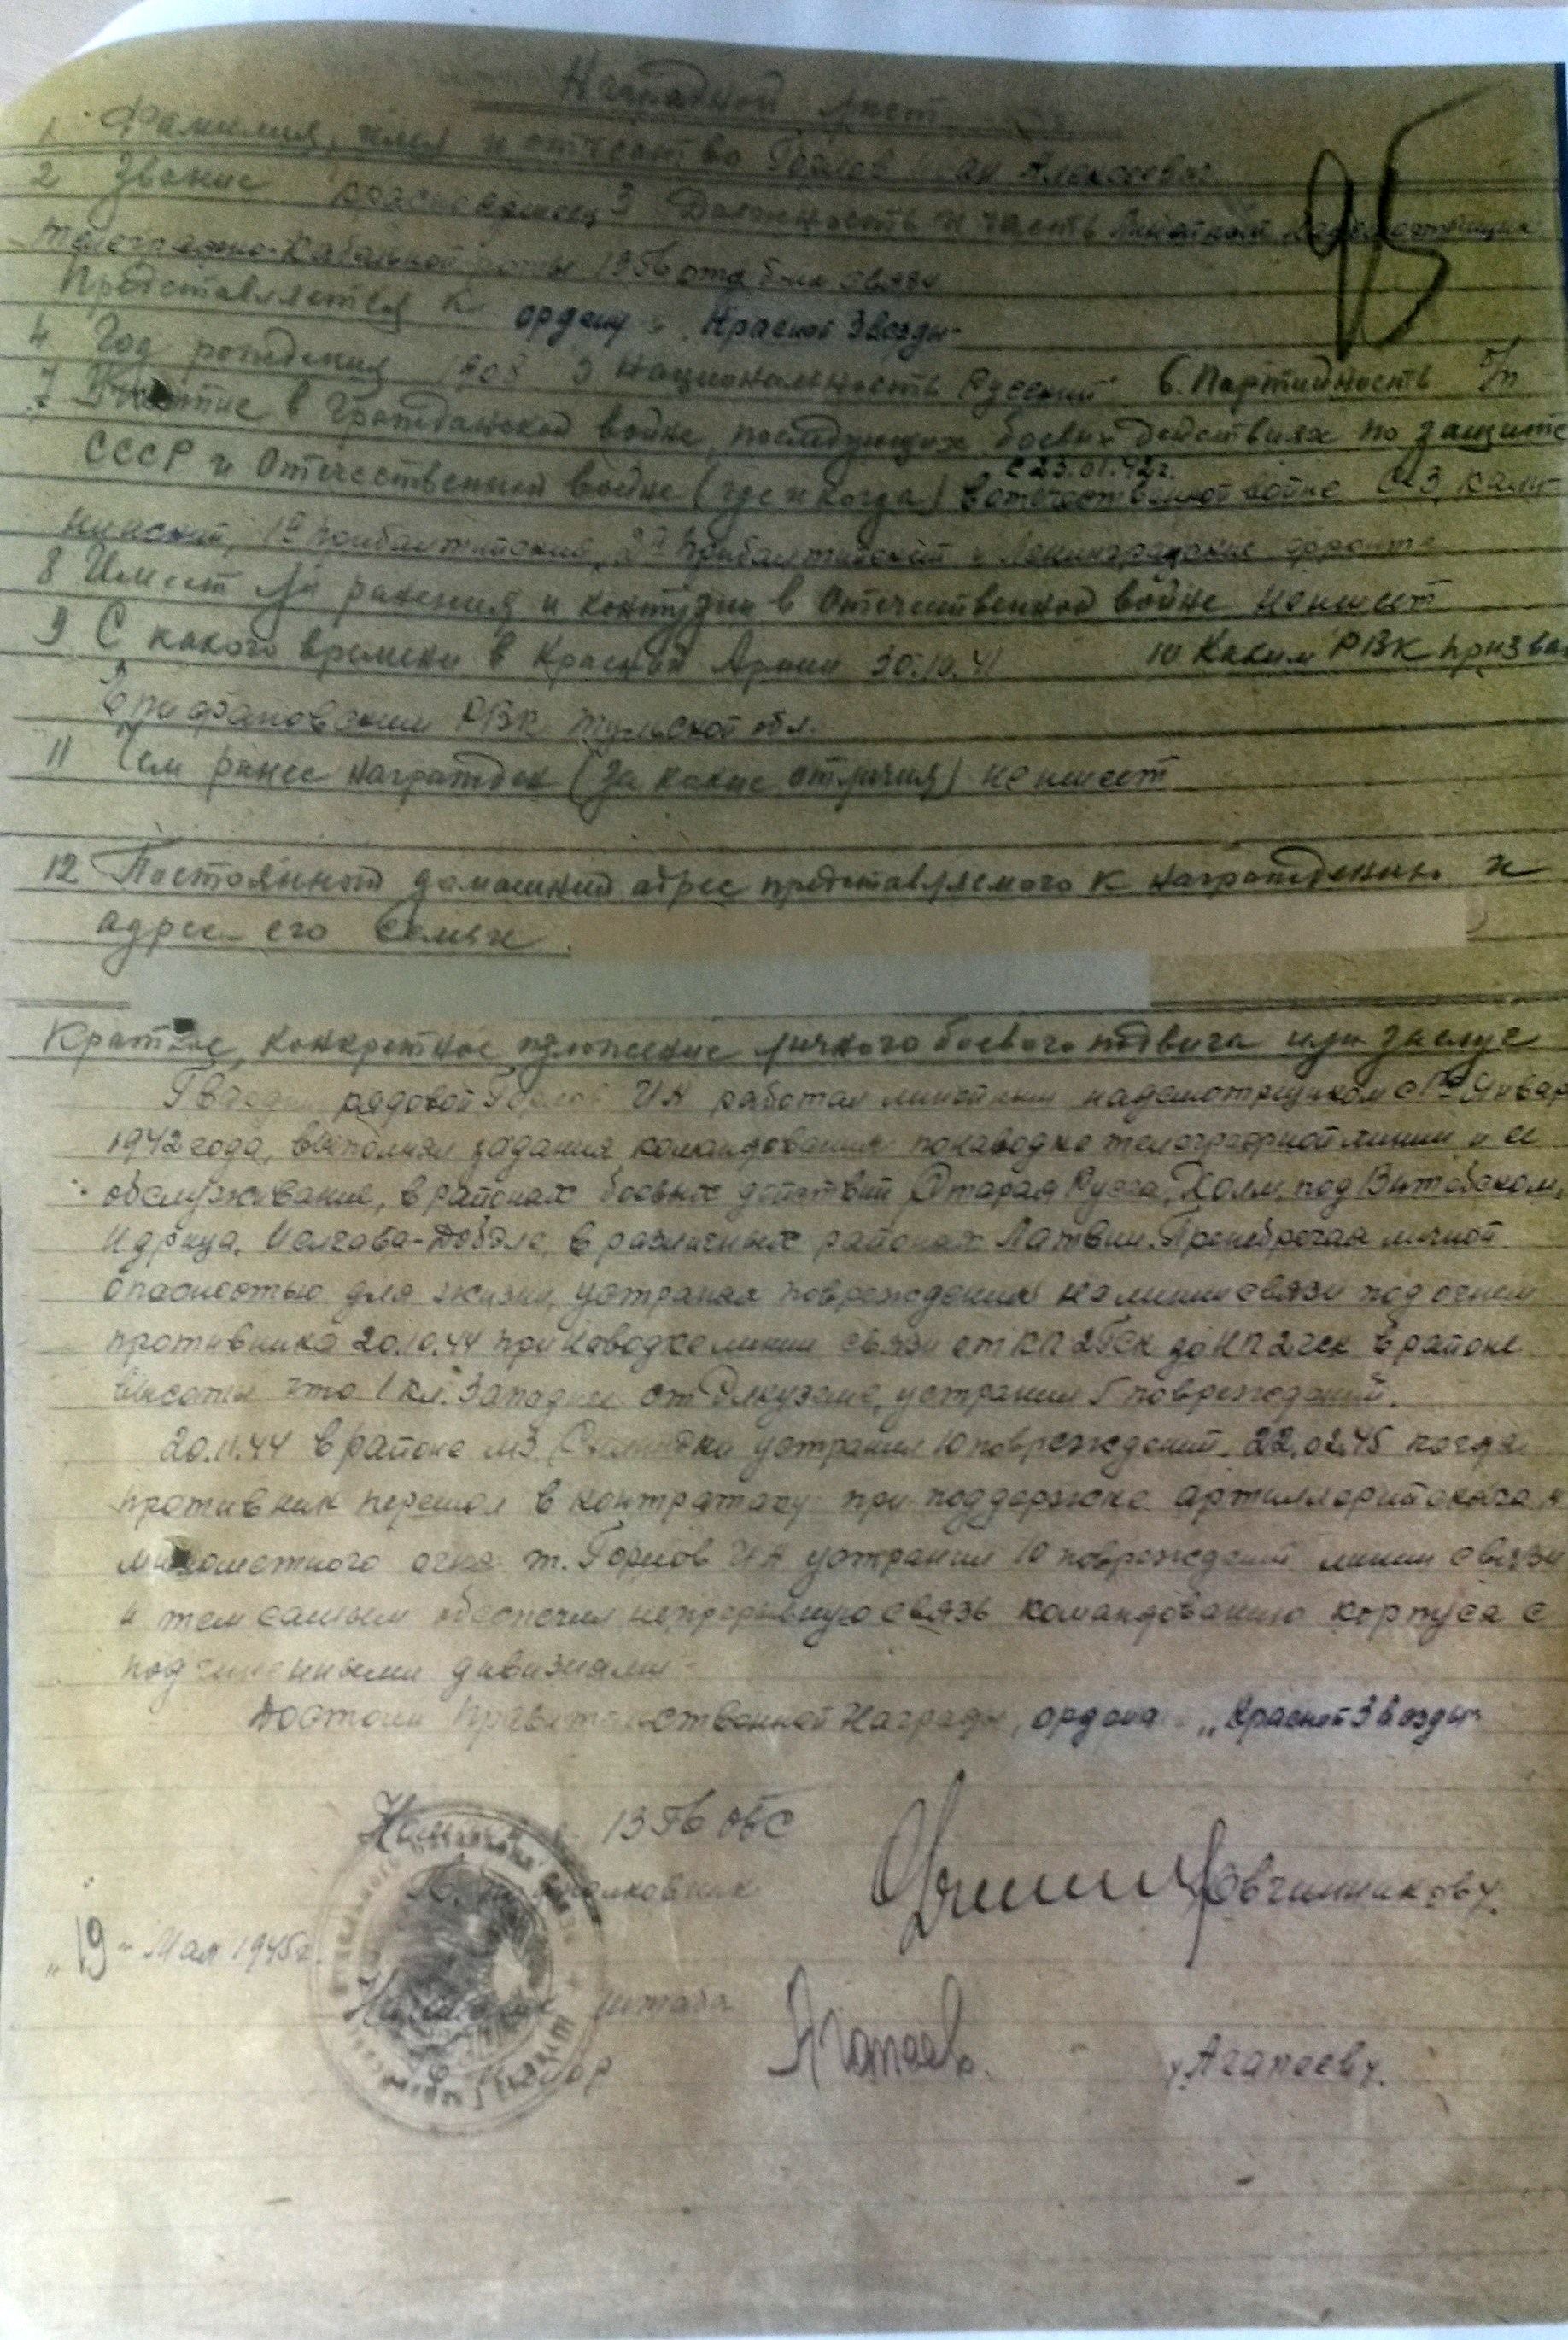 Наградной лист
1 Фамилия, имя и отчество Алексеевич
2 Звание красноармеец 3 Должность и часть Линейный надсмотрщик
телеграфно-кабельной роты отд б-на связи
Представляется к ордену Красной Звезды
4 Год рождения 1908 5 Национальность Русский 6. Партийность б/п
7 Участие в гражданской войне, последующих боевых действиях по защите
с 23.01.42г.
СССР и Отечественной войне (где и когда) в отечественной войне СЗ, Кали-
нинский, 1й Прибалтийский, 2й Прибалтийский и Ленинградские фронт
8 Имеет ли ранения и контузии в Отечественной войне не имеет
9 С какого времени в Красной Армии 30.10.41 10 Каким РВК призван
Епифановским РВК Тульской обл.
11 Чем ранее награжден (за какие отличия) не имеет
12 Постоянный домашний адрес представляемого к награждению и
адрес его семьи
Краткое, конкретное изложение личного боевого подвига или заслуг
Гвардии рядовой ИА работая линейным надсмотрщиком с января
1942 года, выполнял задания командования по наводке телеграфной линии и ее
обслуживание, в районах боевых действий Старая Русса, Холм, под Витебском,
Идрица, Иелгава-Добеле, в различных районах Латвии. Пренебрегая личной
опасностью для жизни, устранял повреждения на линии связи под огнем
противника 20.10.44 при наводке линии связи от КП 2ГСК до НП 2ГСК в районе
высоты что 1 кл. Западнее от устранил 5 повреждений.
20.11.44 в районе мз. устранил 10 повреждений. 22.02.45 когда
противник перешол в контратаку при поддержке артиллерийского и
минометного огня т. Горлов ИА устранил 10 повреждений линии связи
и тем самым обеспечил непрерывную связь командованию корпуса с
подчиненными дивизиями
Достоин Правительственной Награды, ордена "Красной Звезды"
13 Гв ОБС
подполковник Овчинников
"19" Мая 1945г.
Начальник штаба
майор Агапеев Агапеев